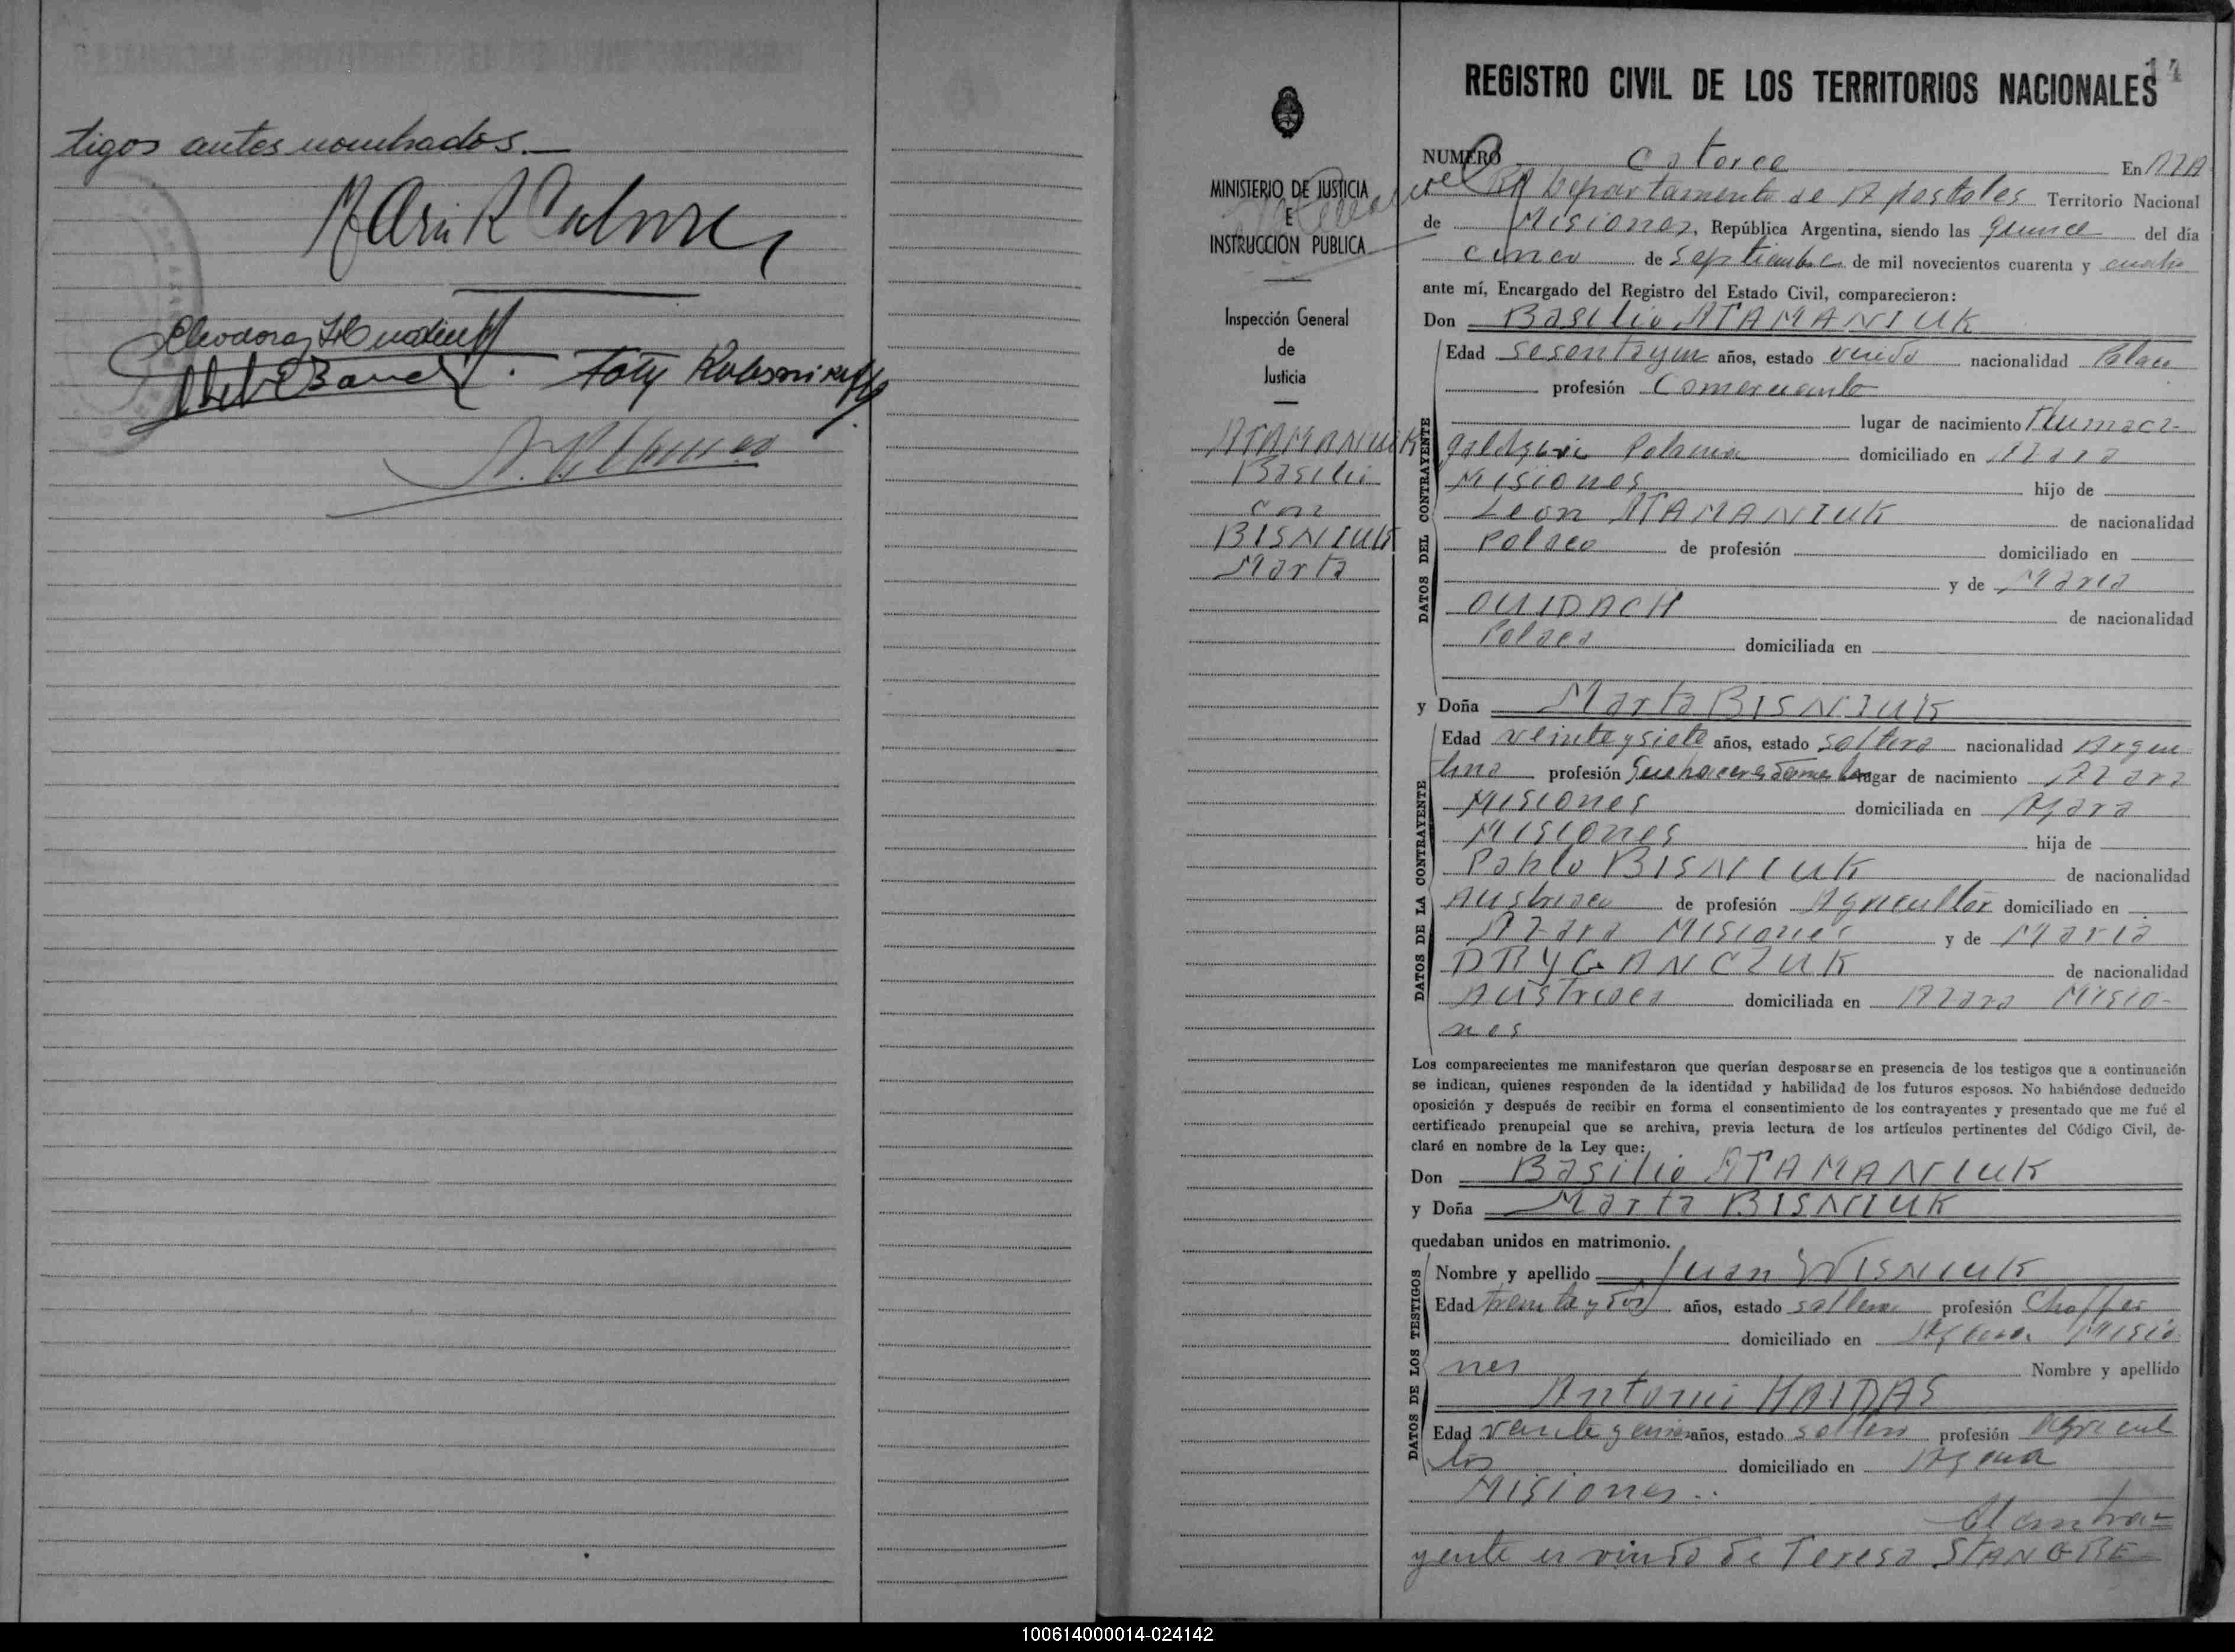 tigos antes nombrados.—
14
REGISTRO CIVIL DE LOS TERRITORIOS NACIONALES
MINISTERIO DE JUSTICIA
E
INSTRUCCIÓN PUBLICA
Inspección General
de
Justicia
ATAMANIUK
Basilio
con
BISNIUK
Marta
NUMERO Catorce En AZA
RA Departamento de Apostoles Territorio Nacional
de Misiones, República Argentina, siendo las quince del día
cinco de Septiembre de mil novecientos cuarenta y cuatro
ante mí, Encargado del Registro del Estado Civil, comparecieron:
Don Basilio ATAMANIUK
DATOS DEL CONTRAYENTE
Edad sesentayun años, estado viudo nacionalidad Polaco
profesión Comerciante
lugar de nacimiento Tlumacz
Polonia domiciliado en Azara
Misiones hijo de
Leon ATAMANIUK de nacionalidad
Polaco de profesión domiciliado en
y de Maria
OUIDACH de nacionalidad
Polaca domiciliada en
y Doña Marta BISNIUK
DATOS DE LA CONTRAYENTE
Edad veinteysiete años, estado soltera nacionalidad Argen
tina profesión lugar de nacimiento Azara
Misiones domiciliada en Azara
Misiones hija de
Pablo BISNIUK de nacionalidad
Austriaco de profesión Agricultor domiciliado en
Azara Misiones y de Maria
DRYGANCZUK de nacionalidad
Austriaca domiciliada en Azara Misio-
nes
Los comparecientes me manifestaron que querían desposarse en presencia de los testigos que a continuación
se indican, quienes responden de la identidad y habilidad de los futuros esposos. No habiéndose deducido
oposición y después de recibir en forma el consentimiento de los contrayentes y presentado que me fué el
certificado prenupcial que se archiva, previa lectura de los artículos pertinentes del Código Civil, de-
claré en nombre de la Ley que:
Don Basilio ATAMANIUK
y Doña Marta BISNIUK
quedaban unidos en matrimonio.
DATOS DE LOS TESTIGOS
Nombre y apellido Juan WISNIUK
Edad treinta y dos años, estado soltero profesión Choffer
domiciliado en Azara Misio
nes Nombre y apellido
Antonio HAIDAS
Edad años, estado soltero profesión agricul
tor domiciliado en Azara
Misiones
El contra-
yente es viudo de Teresa STANGRE
100614000014-024142